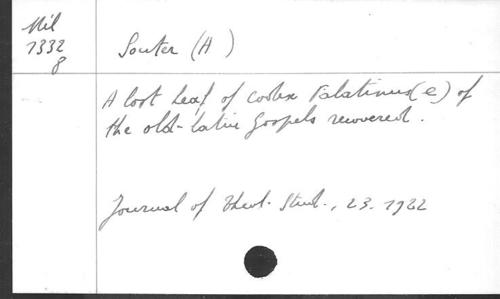 Mil
1332
8
Souter (A )
A lost Leaf of codex Palatinus (e) of
the old-Latin Gospels recovered.
Journal of Theol. Stud., 23. 1922